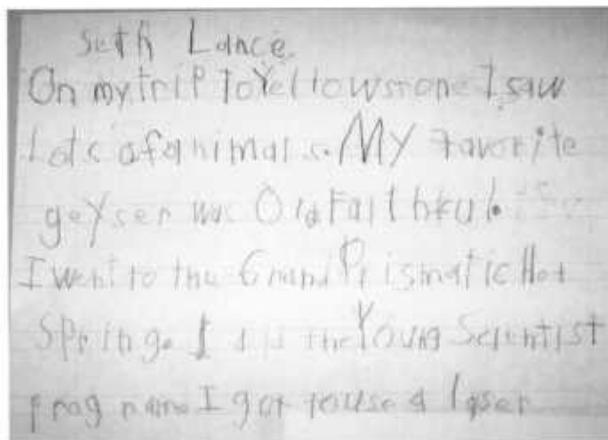 Seth Lance.
On my trip To Yellowstone I saw
Lots of animals. My Favorite
geyser was Old Faithful.
I went to the Grand Prismatic Hot
Spring. I did the Young Scientist
prog name I got to use a laser